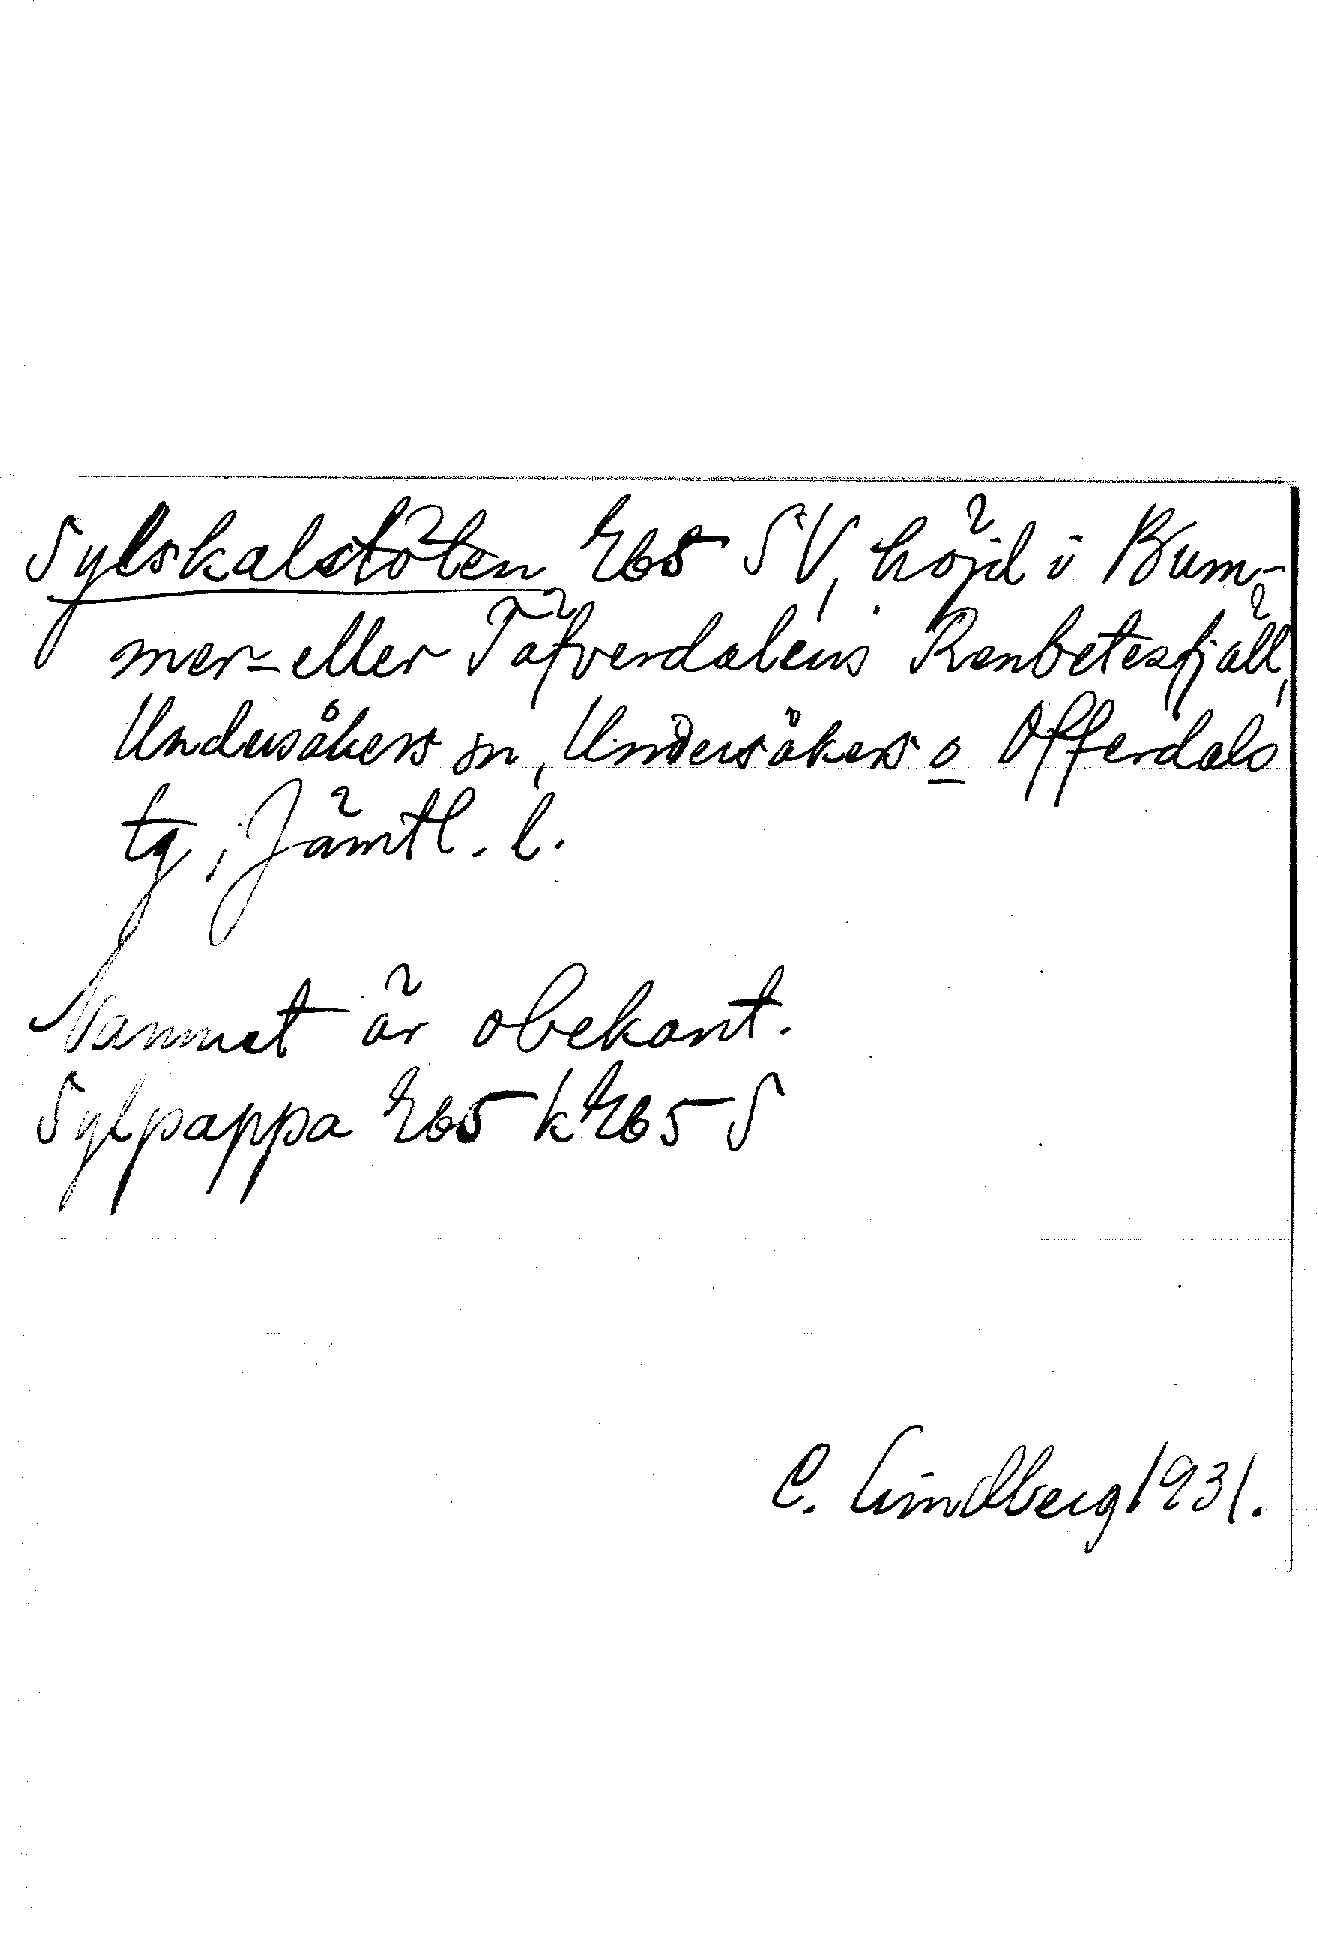 Sylskalstöten Eb5 SV, höjd i Bum-
mer- eller Täfverdalens Renbetesfjäll,
Undersåkers sn, Undersåkers o Offerdals
tg, Jämtl. l.
Namnet är obekant.
Sylpappa Eb5 k Eb5 S
C. Lindberg 1931.